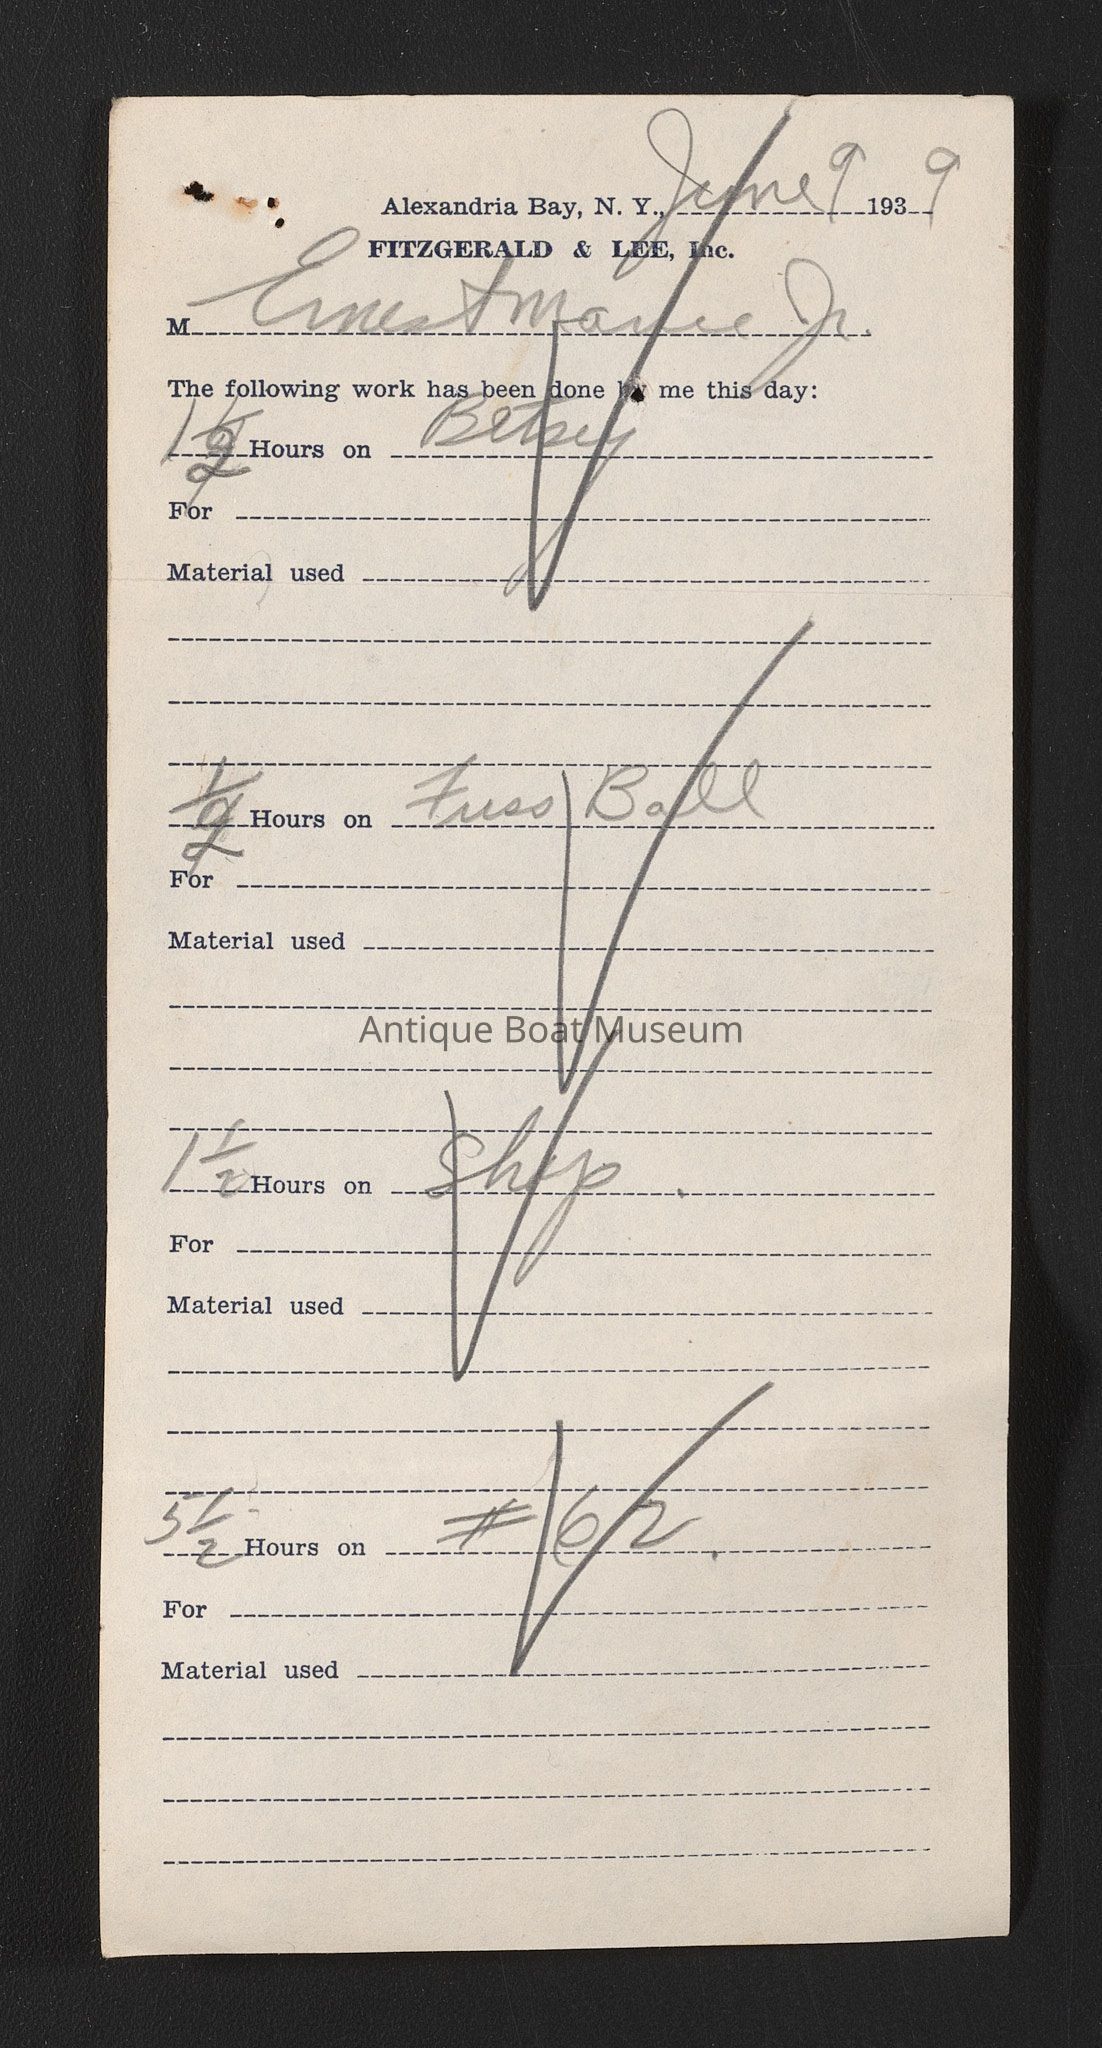 Alexandria Bay, N. Y., June 9 1939
FITZGERALD & LEE, Inc.
M Ernest Jr.
The following work has been done by me this day:
1 1/2 Hours on Betsey
For
Material used
1/2 Hours on Fuss Ball
For
Material used
Antique Boat Museum
1 1/2 Hours on Shop.
For
Material used
5 1/2 Hours on #62.
For
Material used